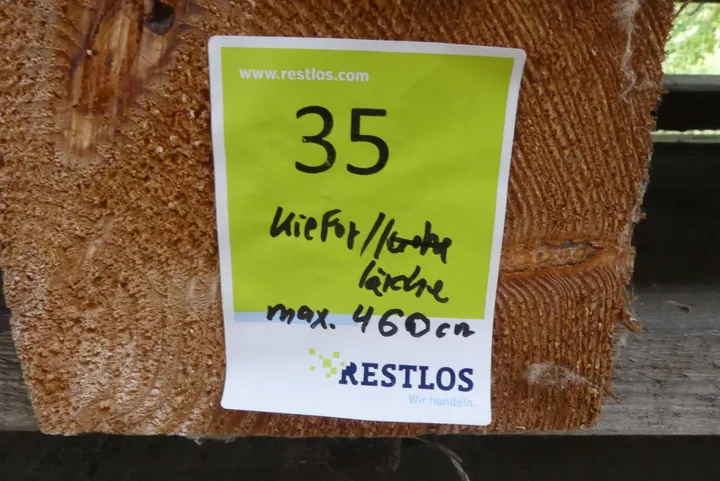 www.restlos.com
35
Kiefer//
lärche
max. 460cm
RESTLOS
Wir handeln.